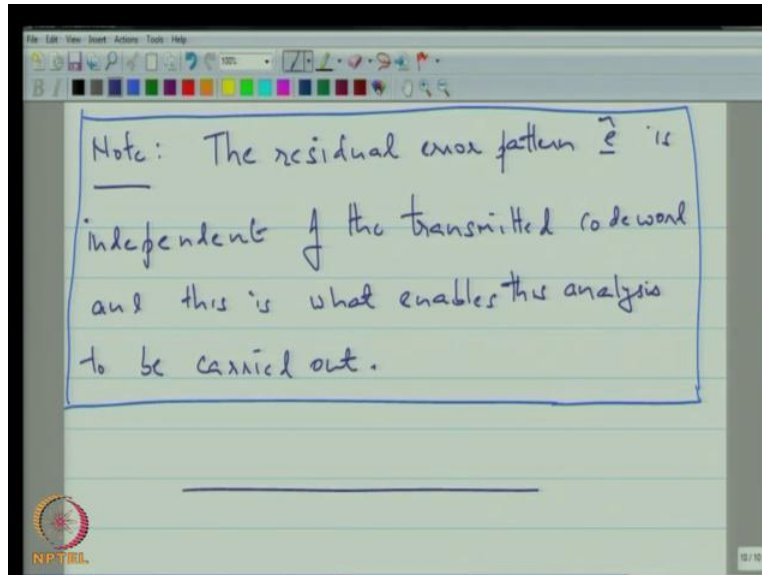 File Edit View Insert Actions Tools Help
100%
B I
Note: The residual error pattern ê is
independent of the transmitted codeword
and this is what enables this analysis
to be carried out.
NPTEL
10/10